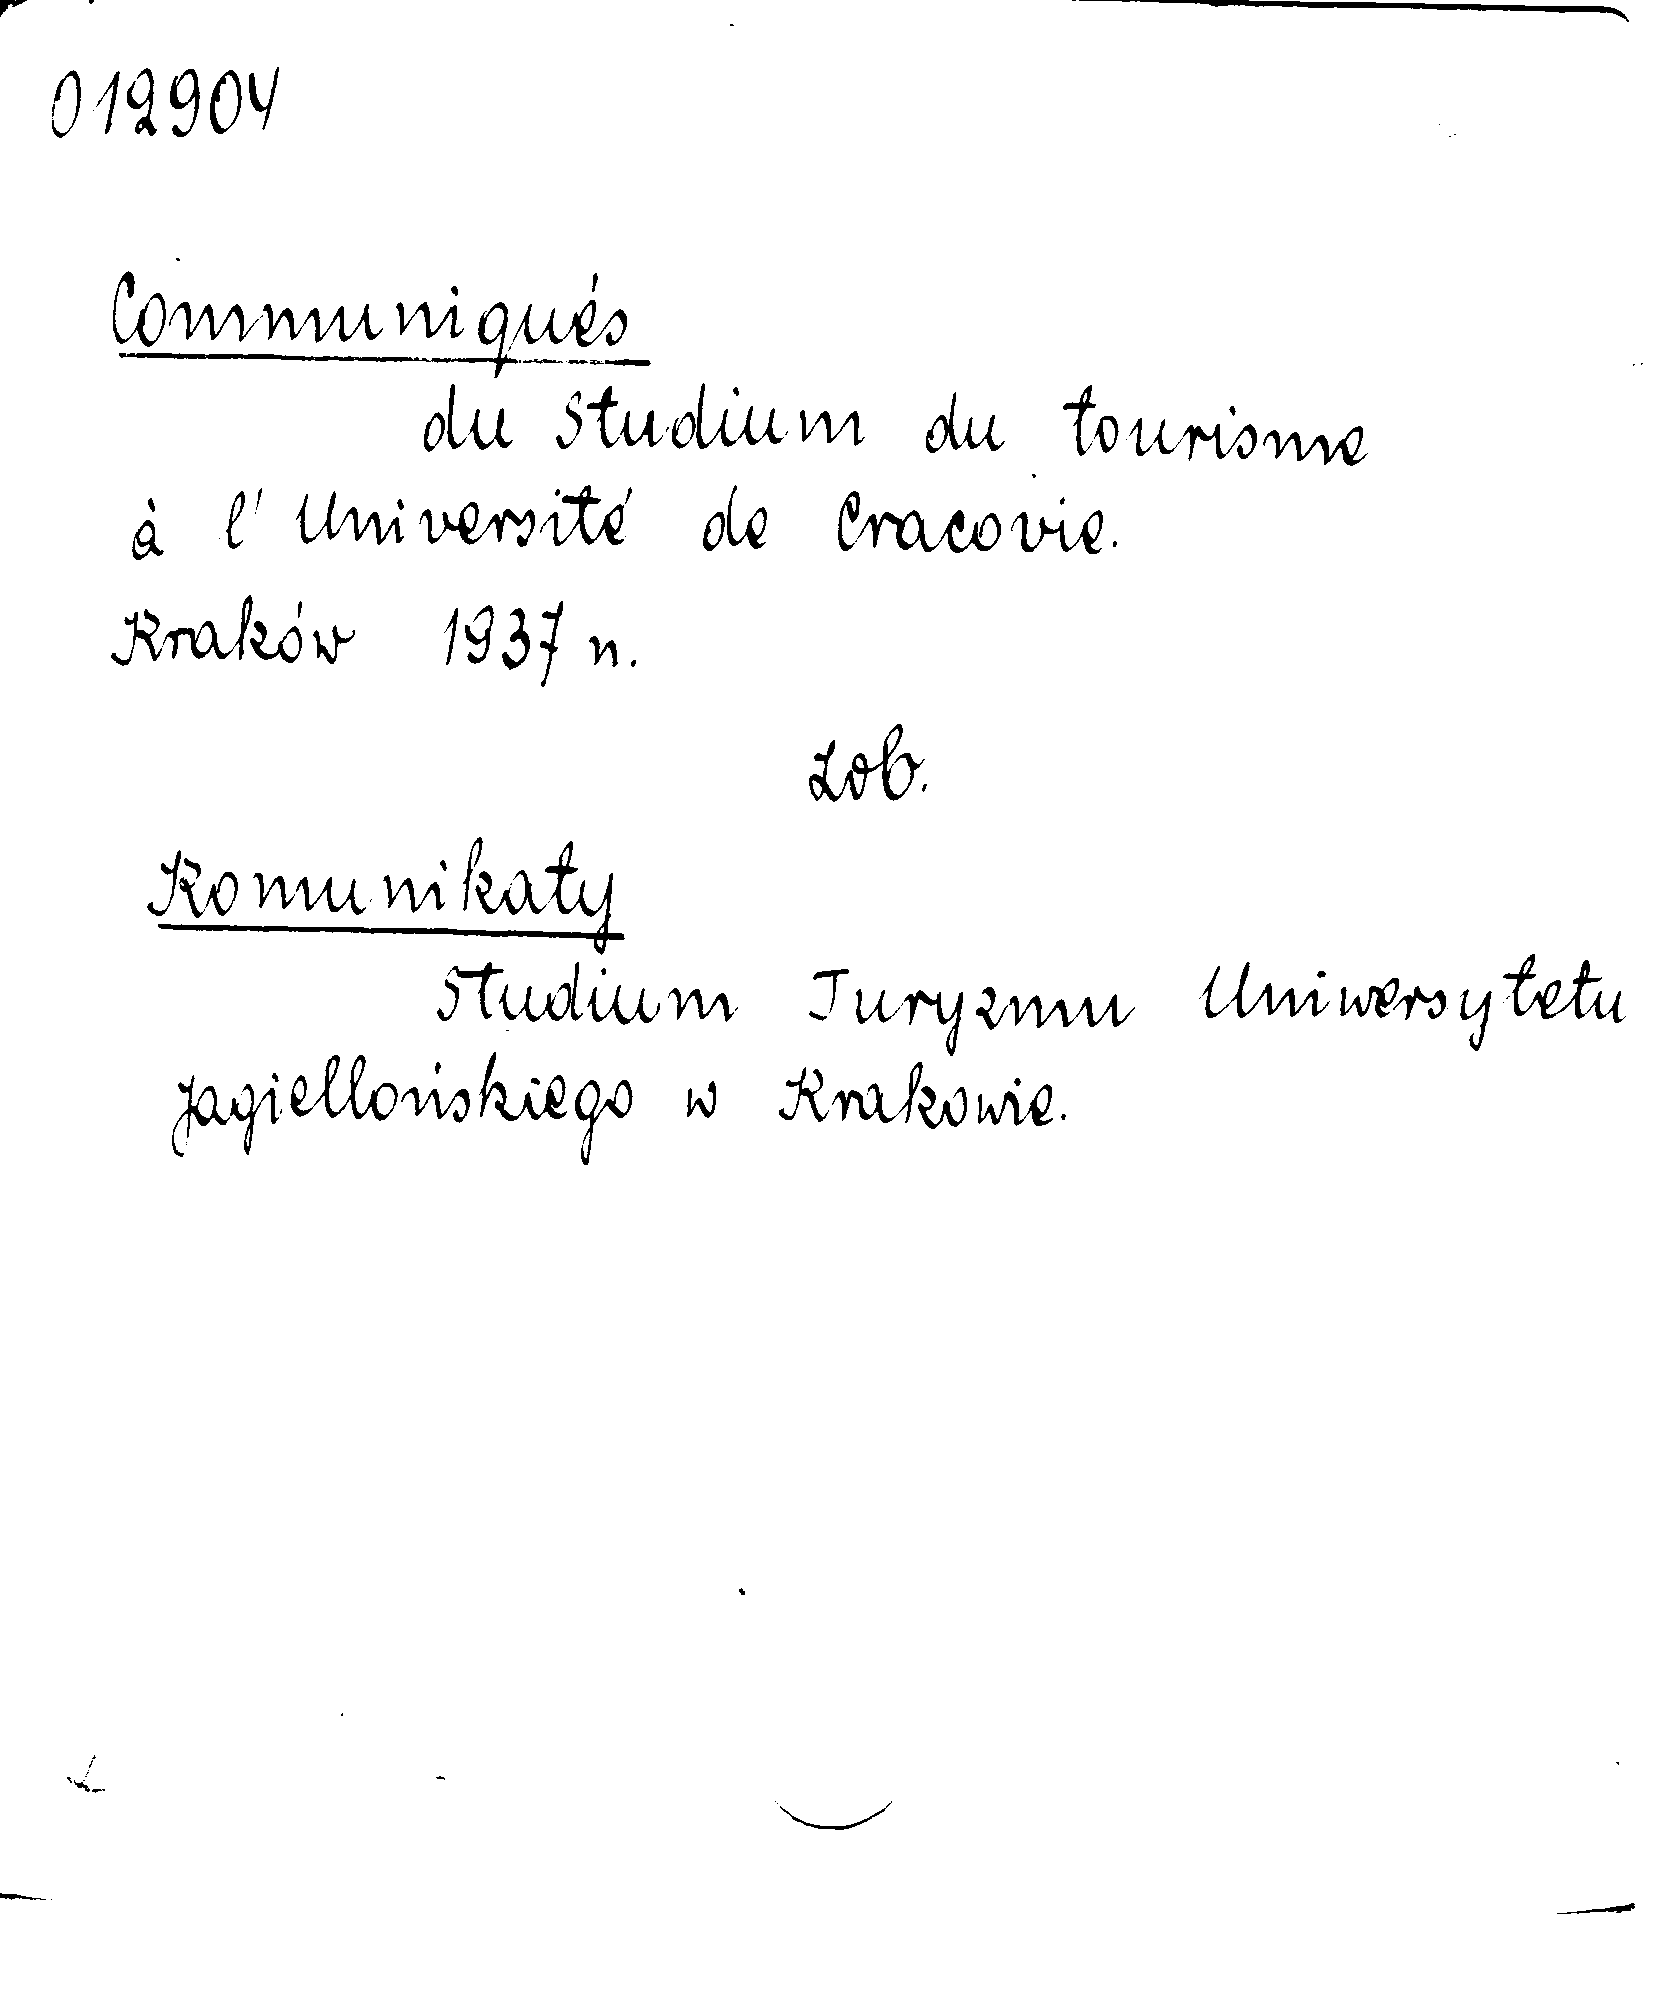 012904
Communiqués
du Studium du tourisme
à l'Université de Cracovie.
Kraków 1937 n.
Zob.
Komunikaty
Studium Turyzmu Uniwersytetu
Jagiellońskiego w Krakowie.